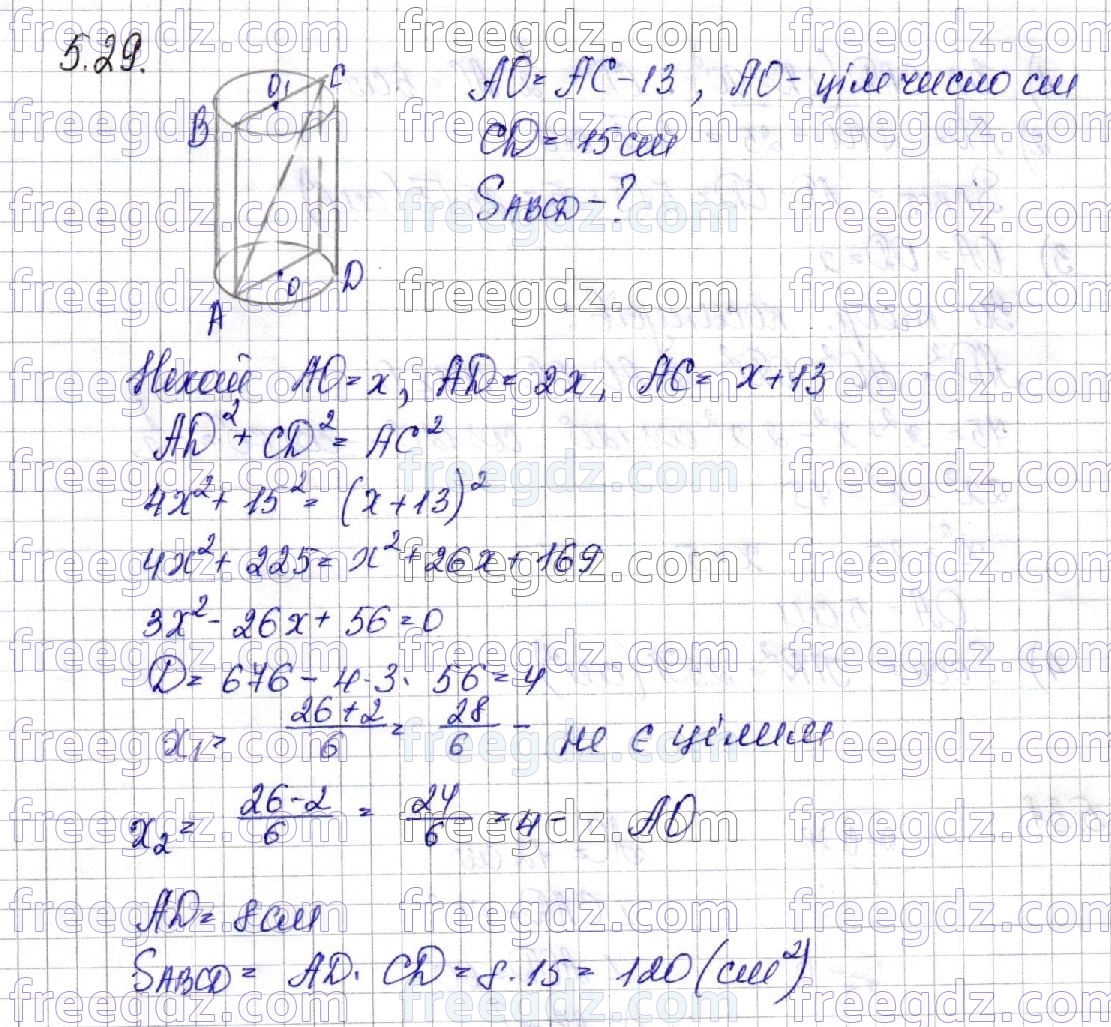 5.29.
B O₁ C
A O D
AO = AC - 13, AO - ціле число см
CD = 15 см
S_ABCD - ?
Нехай AO = x, AD = 2x, AC = x + 13
AD² + CD² = AC²
4x² + 15² = (x + 13)²
4x² + 225 = x² + 26x + 169
3x² - 26x + 56 = 0
D = 676 - 4·3·56 = 4
x₁ = (26+2)/6 = 28/6 - не є цілим
x₂ = (26-2)/6 = 24/6 = 4 - AO
AD = 8 см
S_ABCD = AD · CD = 8 · 15 = 120 (см²)
freegdz.com